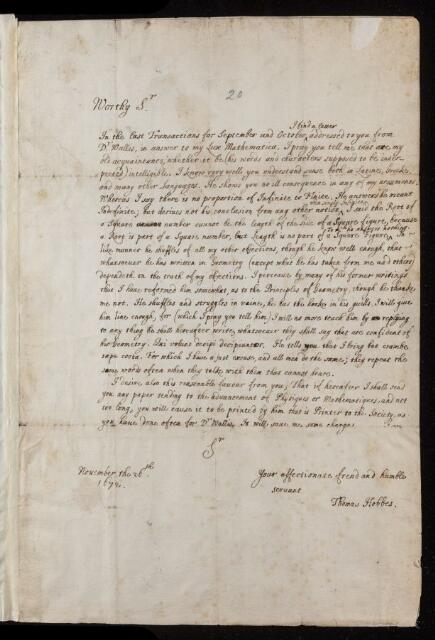 20
Worthy Sr
I find a letter
In the last Transactions for September and October, addressed to you from
Dr Wallis, in answer to my Lux Mathematica. I pray you tell me that are my
old acquaintance, whether it be (his words and characters supposed to be inter-
preted) intelligible. I know very well you understand sense both in Latine, Greeke,
and many other Languages. He shows you no ill consequence in any of my arguments.
Whereas I say there is no proportion of Infinite to Finite. He answers he meant
Indefinite; but derives not his conclusion from any other notion
than simply Infinite. I said the Root of
a Square number cannot be the length of the side of a Square figure, because
a Root is part of a Square number, but Length is no part of a Square Figure.
To this he answers nothing. In
like manner he shuffles of all my other objections, though he know well enough, that
whatsoever he has written in Geometry (except what he has taken from me and others)
dependeth on the truth of my objections. I perceave by many of his former writings
that I have reformed him somewhat as to the Principles of Geometry, though he thanke
me not. He shuffles and struggles in vaine, he has the hooke in his guills, I will give
him line enough, for (which I pray you tell him) I will no more teach him by replying
to any thing he shall hereafter write, whatsoever they shall say that are confident of
his Geometry. Qui volunt decipi decipiantur. He tells you that I bring but crambe
sæpe cocta. For which I have a just excuse, and all men do the same; they repeat the
same words often when they talk with them that cannot heare.
I desire also this reasonable favour from you; That if hereafter I shall send
you any paper tending to the advancement of Physiques or Mathematiques, and not
too long, you will cause it to be printed by him that is Printer to the Society, as
you have done often for Dr Wallis. It will save me some charges. I am
Sr
November the 26th
1672.
Your affectionate frend and humble
servant
Thomas Hobbes.